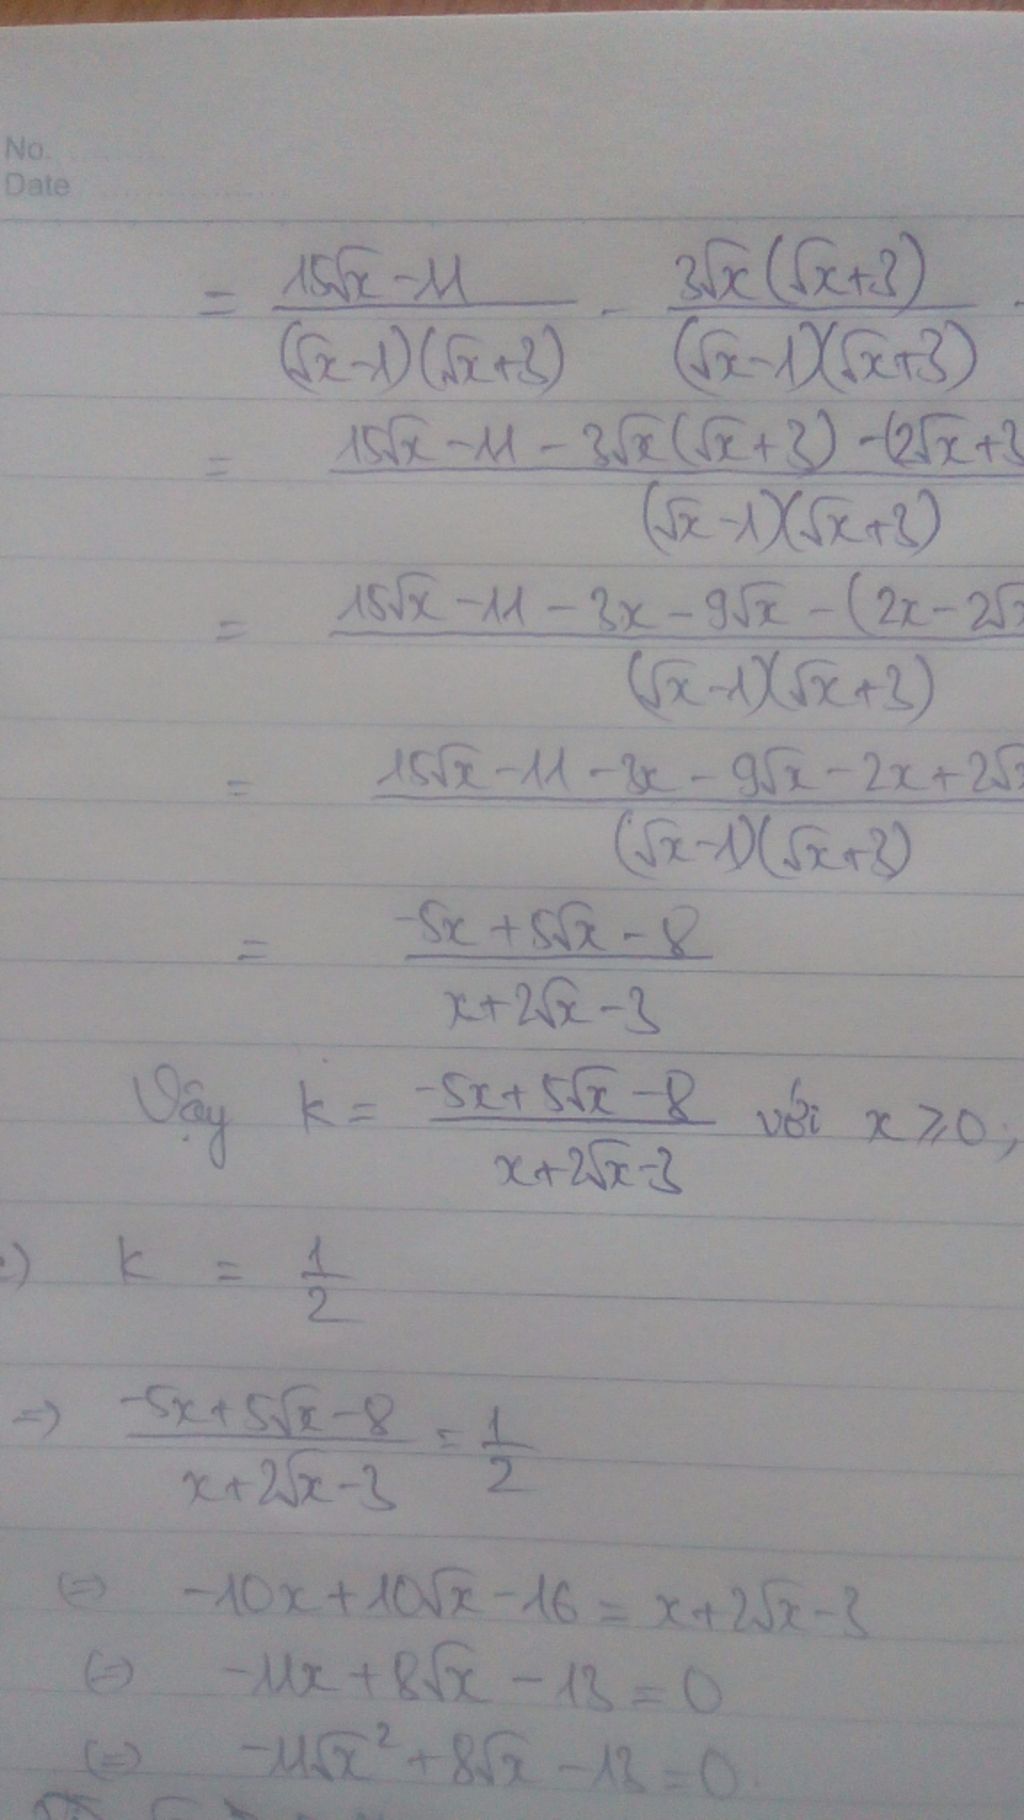 No.
Date
= (15√x - 11)/((√x - 1)(√x + 3)) - (3√x(√x + 3))/((√x - 1)(√x + 3)) -
= (15√x - 11 - 3√x(√x + 3) - (2√x + 3)/((√x - 1)(√x + 3))
= (15√x - 11 - 3x - 9√x - (2x - 2√x)/((√x - 1)(√x + 3))
= (15√x - 11 - 3x - 9√x - 2x + 2√x)/((√x - 1)(√x + 3))
= (-5x + 5√x - 8)/(x + 2√x - 3)
Vậy k = (-5x + 5√x - 8)/(x + 2√x - 3) với x ≥ 0;
) k = 1/2
=> (-5x + 5√x - 8)/(x + 2√x - 3) = 1/2
(=) -10x + 10√x - 16 = x + 2√x - 3
(=) -11x + 8√x - 13 = 0
(=) -11√x² + 8√x - 13 = 0.